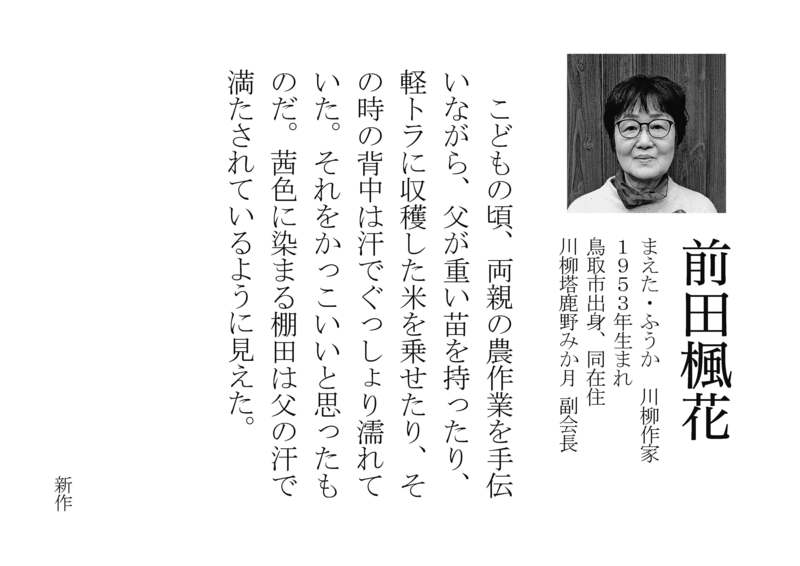 前田楓花
まえた・ふうか 川柳作家
1953年生まれ
鳥取市出身、同在住
川柳塔鹿野みか月 副会長
こどもの頃、両親の農作業を手伝
いながら、父が重い苗を持ったり、
軽トラに収穫した米を乗せたり、そ
の時の背中は汗でぐっしょり濡れて
いた。それをかっこいいと思ったも
のだ。茜色に染まる棚田は父の汗で
満たされているように見えた。
新作